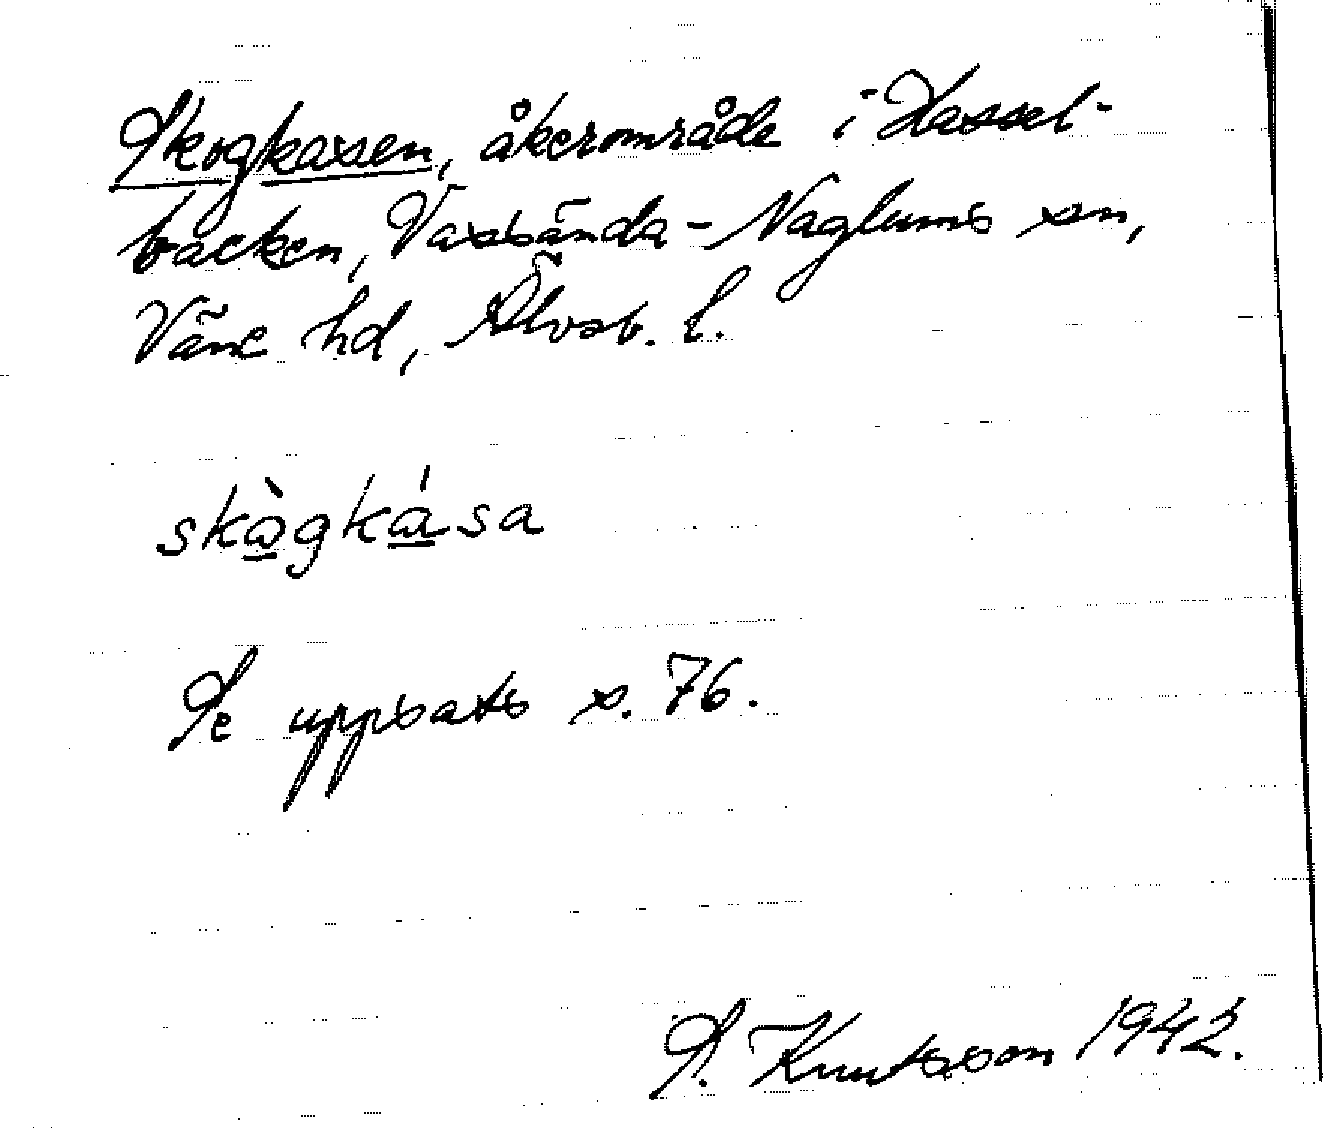 Skogkasen, åkerområde i Hassel-
backen, Vassända-Naglums sn,
Väne hd, Älvsb. l.
skògkása
Se uppsats s. 76.
S. Knutsson 1942.